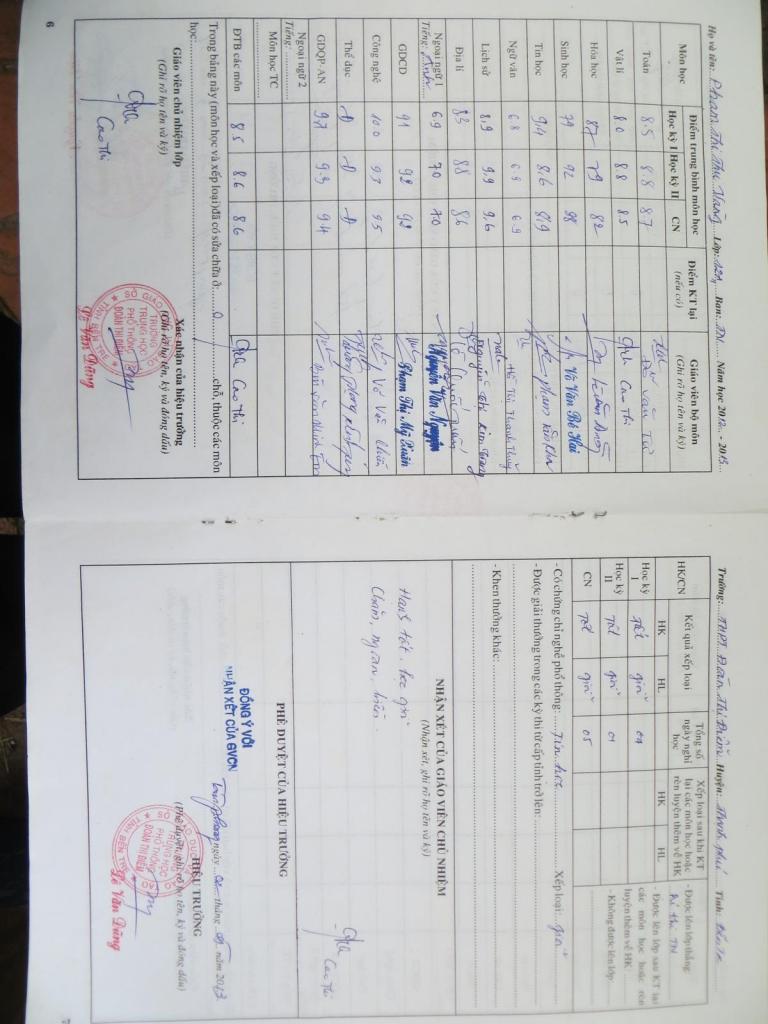 Họ và tên: Phạm Thị Thu Hằng Lớp: 12A1 Ban: TN Năm học 2012 - 2013
Môn học | Điểm trung bình môn học | Điểm KT lại (nếu có) | Giáo viên bộ môn (Ghi rõ họ tên và ký)
Học kỳ I | Học kỳ II | CN
Toán 8.5 8.8 8.7
Vật lí 8.0 8.8 8.5 Cao Thi
Hóa học 8.7 7.9 8.2
Sinh học 7.9 9.2 8.8 Võ Văn Bé Hai
Tin học 9.4 8.6 8.9
Ngữ văn 6.8 6.9 6.9 Hồ Thị Thanh Thúy
Lịch sử 8.9 9.9 9.6 Nguyễn Thị Kim
Địa lí 8.3 8.8 8.6
Ngoại ngữ 1 6.9 7.0 7.0 Nguyễn Văn Nguyện
Tiếng: Anh
GDCD 9.1 9.2 9.2 Phạm Thị Mỹ Xuân
Công nghệ 10.0 9.3 9.5 Võ Văn
Thể dục Đ Đ Đ
GDQP-AN 9.7 9.3 9.4
Ngoại ngữ 2
Tiếng:
Môn học TC
ĐTB các môn 8.5 8.6 8.6 Cao Thi
Trong bảng này (môn học và xếp loại) đã có sửa chữa ở: 0 chỗ, thuộc các môn
học:
Giáo viên chủ nhiệm lớp
(Ghi rõ họ tên và ký)
Cao Thi
Xác nhận của hiệu trưởng
(Ghi rõ họ tên, ký và đóng dấu)
SỞ GIÁO
TRƯỜNG
TRUNG HỌC
PHỔ THÔNG
ĐOÀN THỊ ĐIỂM
TỈNH BẾN TRE
Lê Văn Dũng
6
Trường: THPT Đoàn Thị Điểm Huyện: Thạnh Phú Tỉnh: Bến Tre
HK/CN | Kết quả xếp loại | Tổng số ngày nghỉ học | Xếp loại sau khi KT lại các môn học hoặc rèn luyện thêm về HK
HK | HL | HK | HL
Học kỳ I Tốt giỏi 04
Học kỳ II Tốt giỏi 01
CN Tốt giỏi 05
- Được lên lớp thẳng:
thi TN
- Được lên lớp sau KT lại
các môn học hoặc rèn
luyện thêm về HK
- Không được lên lớp:
- Có chứng chỉ nghề phổ thông: Tin học Xếp loại: giỏi
- Được giải thưởng trong các kỳ thi từ cấp tỉnh trở lên:
- Khen thưởng khác:
NHẬN XÉT CỦA GIÁO VIÊN CHỦ NHIỆM
(Nhận xét, ghi rõ họ tên và ký)
Hạnh tốt, học giỏi
Chăm, ngoan, hiền.
Cao Thi
PHÊ DUYỆT CỦA HIỆU TRƯỞNG
ĐỒNG Ý VỚI
NHẬN XÉT CỦA GVCN
ngày tháng 05 năm 2013
HIỆU TRƯỞNG
(Phê duyệt, ghi rõ họ tên, ký và đóng dấu)
TRƯỜNG
TRUNG HỌC
PHỔ THÔNG
ĐOÀN THỊ ĐIỂM
TỈNH BẾN TRE
Lê Văn Dũng
7